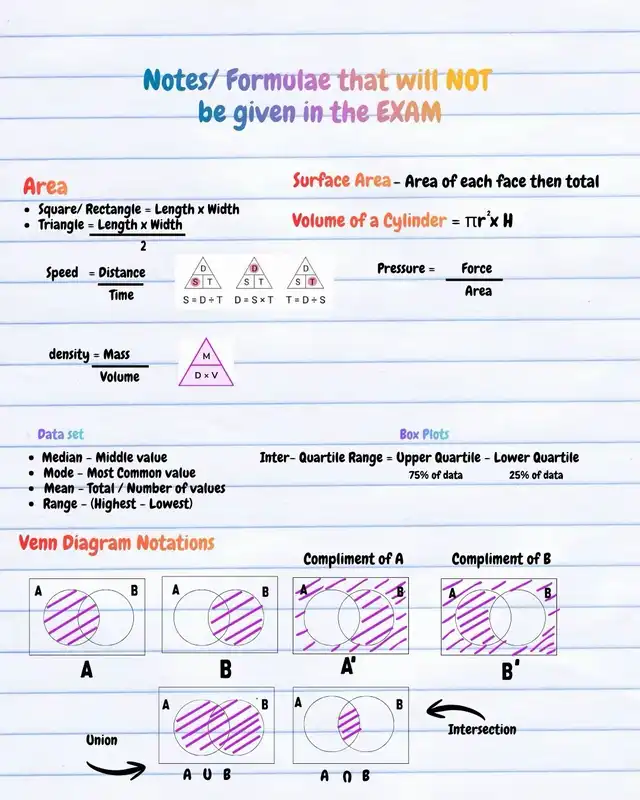 Notes/ Formulae that will NOT
be given in the EXAM
Area
• Square/ Rectangle = Length x Width
• Triangle = Length x Width
2
Surface Area - Area of each face then total
Volume of a Cylinder = πr²x H
Speed = Distance
Time
D
S T
S = D ÷ T
D
S T
D = S × T
D
S T
T = D ÷ S
Pressure = Force
Area
density = Mass
Volume
M
D × V
Data set
• Median - Middle value
• Mode - Most Common value
• Mean - Total / Number of values
• Range - (Highest - Lowest)
Box Plots
Inter- Quartile Range = Upper Quartile - Lower Quartile
75% of data 25% of data
Venn Diagram Notations
Compliment of A
Compliment of B
A B
A
A B
B
A B
A'
A B
B'
Union
A B
A U B
A B
A ∩ B
Intersection